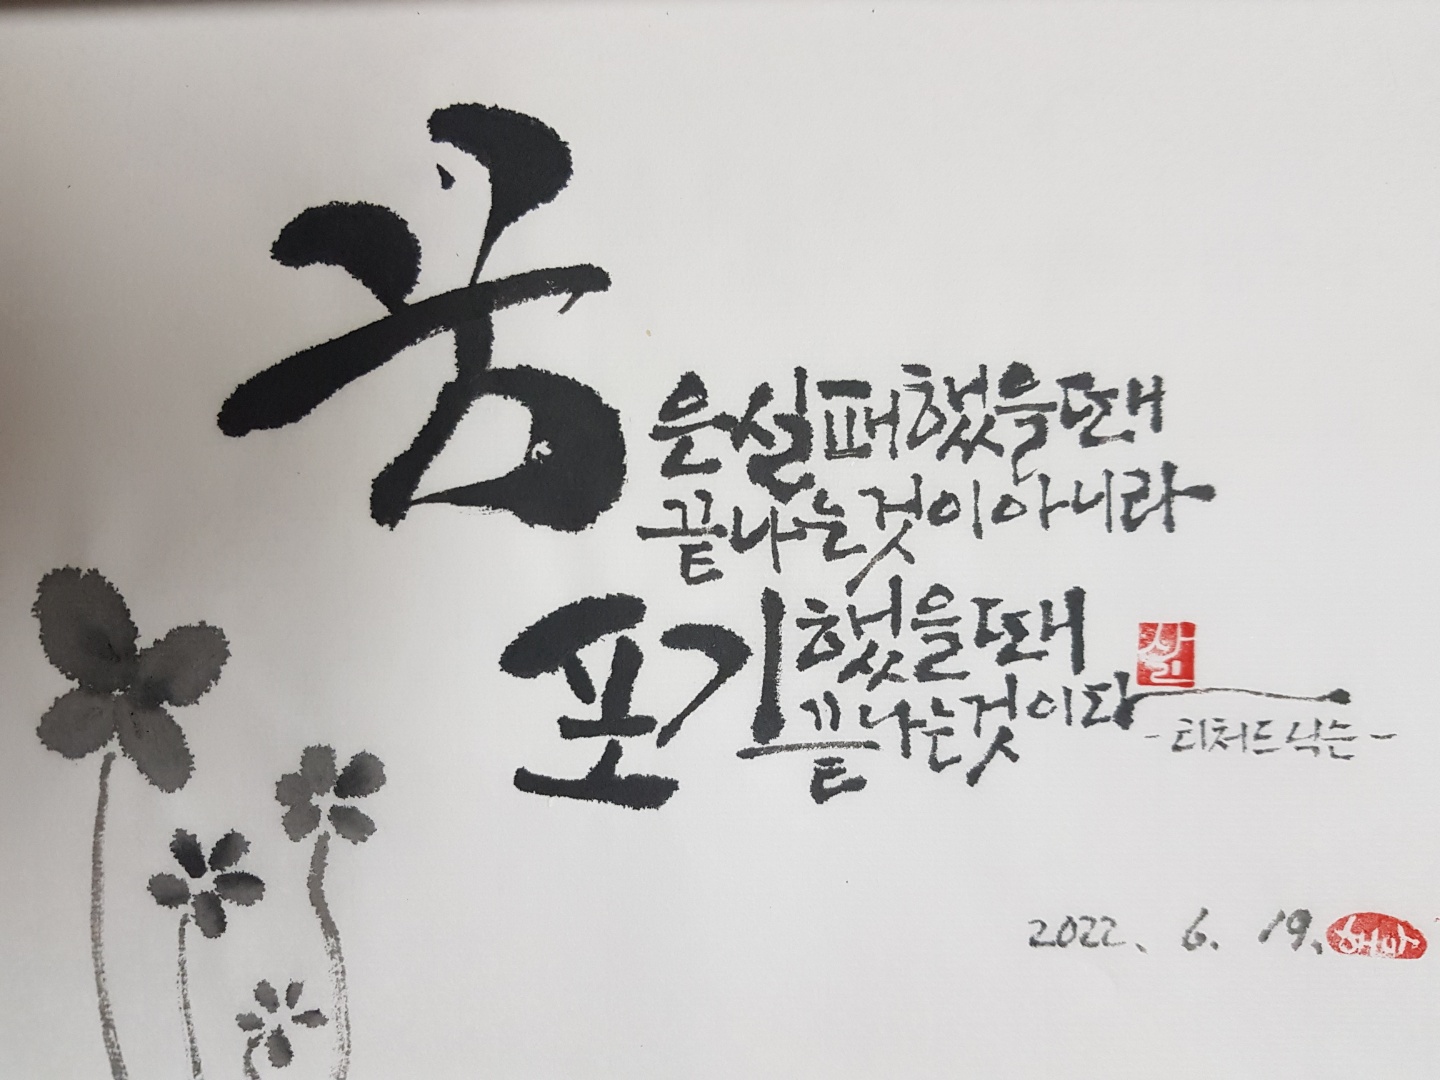 꿈은실패했을때
끝나는것이아니라
포기했을때
끝나는것이다
-리처드닉슨-
2022. 6. 19. 해마